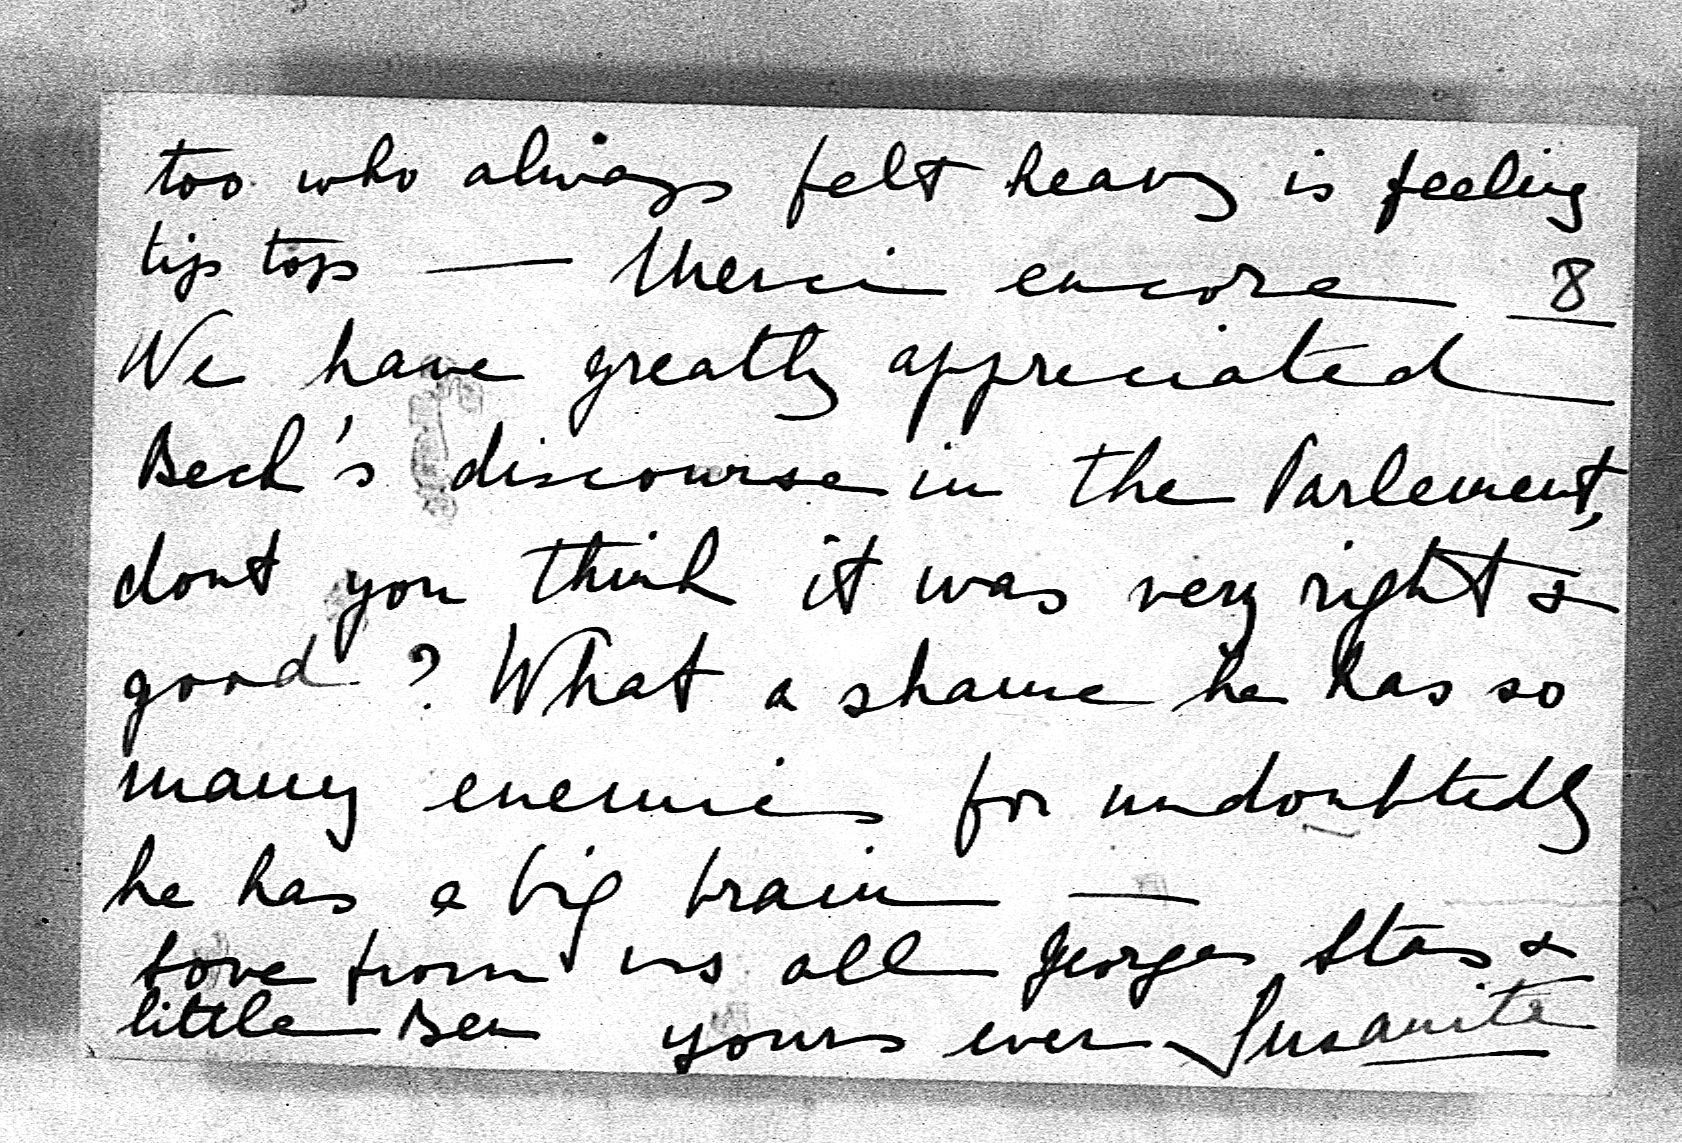 too who always felt heavy is feeling
tip top — Merci encore 8
We have greatly appreciated
Beck's discourse in the Parlement,
dont you think it was very right &
good ? What a shame he has so
many enemies for undoubtedly
he has a big brain —
love from us all Georges Stas &
little Ben yours ever Susanita